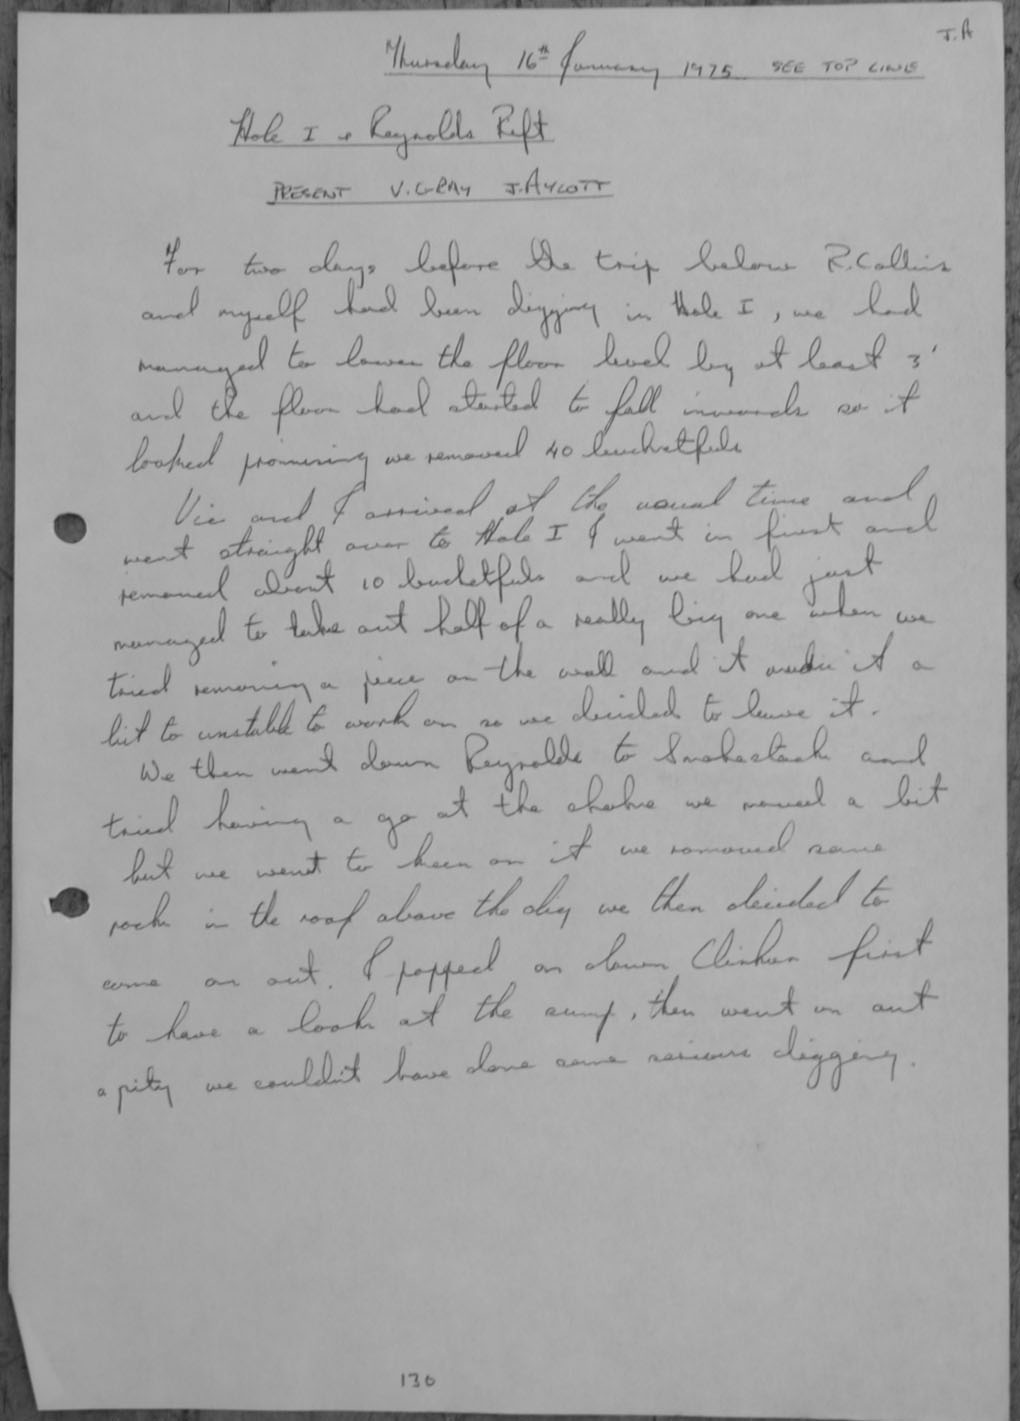 J.A
Thursday 16th January 1975 SEE TOP LINE
Hole I & Reynolds Rift
PRESENT V. GRAY J. AYCOTT
For two days before the trip below R. Collins
and myself had been digging in Hole I, we had
managed to lower the floor level by at least 3'
and the floor had started to fall inwards so it
looked promising we removed 40 bucketfuls
Vic and I arrived at the usual time and
went straight over to Hole I I went in first and
removed about 10 bucketfuls and we had just
managed to take out half of a really big one when we
tried removing a piece on the wall and it made it a
bit to unstable to work on so we decided to leave it.
We then went down Reynolds to Smokestack and
tried having a go at the choke we moved a bit
but we went to keen on it we removed some
rock in the roof above the dig we then decided to
come on out. I popped on down Clinker first
to have a look at the sump, then went on out
a pity we couldn't have done some serious digging.
130